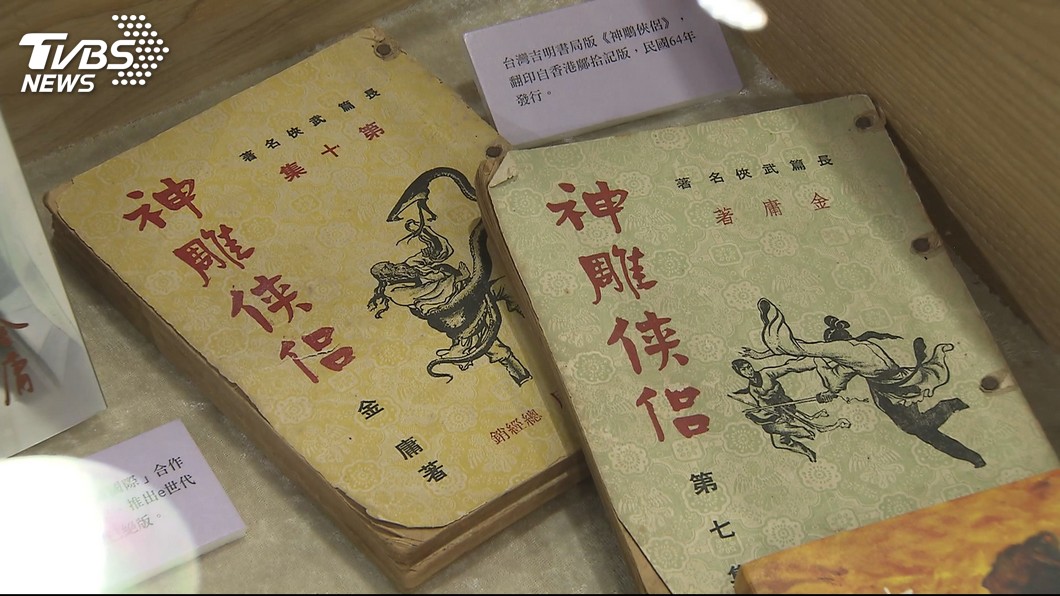 TVBS
NEWS
台灣吉明書局版《神鵰俠侶》，
翻印自香港鄺拾記版，民國64年
發行。
長篇武俠名著
第十集
神雕侠侣
金庸著
總經銷
長篇武俠名著
金庸著
神雕侠侣
第七
國際」合作
推出e世代
絕版。
庸